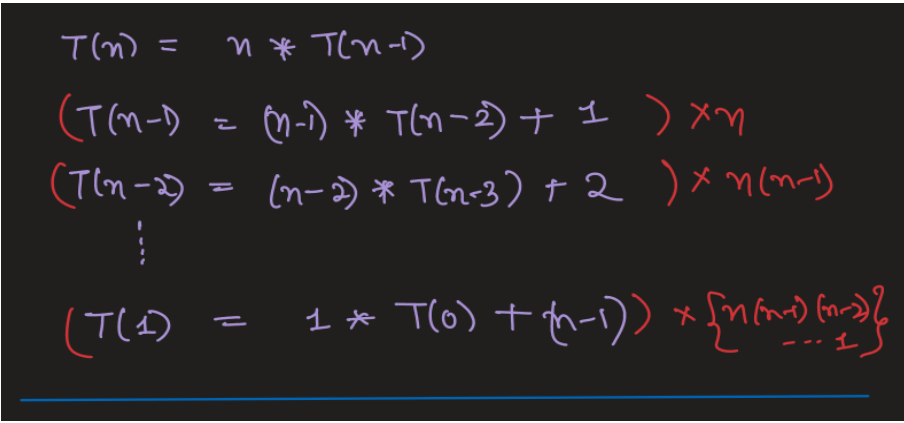 T(n) = n * T(n-1)
(T(n-1) = (n-1) * T(n-2) + 1) × n
(T(n-2) = (n-2) * T(n-3) + 2) × n(n-1)
⋮
(T(1) = 1 * T(0) + (n-1)) × {n(n-1)(n-2)
---- 1}